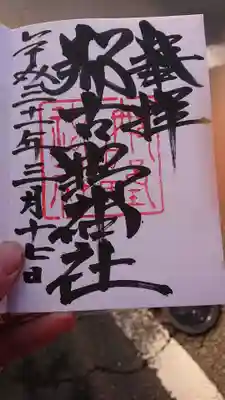 奉拝
那古野神社
平成三十年三月十七日